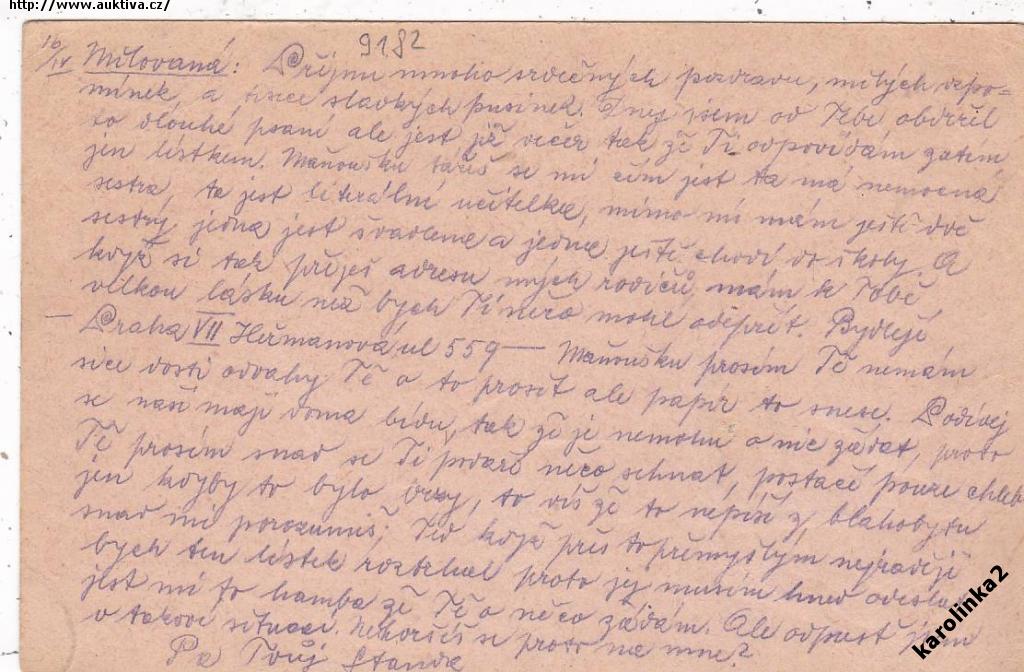 http://www.auktiva.cz/
9182
16/IV Milovaná: Přijmi mnoho srdečných pozdravu, milých vzpo=
mínek, a tisíce sladkých pusinek. Dnes jsem od Tebe obdržel
to dlouhé psaní ale jest již večer tak že Ti odpovídám zatím
jen lístkem. Mařoušku tážeš se mi čím jest ta má nemocná
sestra, ta jest učitelka, mimo ní mám ještě dvě
sestry jedna jest švadlena a jedna ještě chodí do školy. A
když si tak přeješ adresu mých rodičů, mám k Tobě
velkou lásku než bych Ti něco mohl odepřít. Bydlejí
— Praha VII Heřmanová ul 559 — Mařoušku prosím Tě nemám
sice dosti odvahy Tě o to prosit ale papír to snese. Podívej
se naši mají doma bídu, tak že je nemohu o nic žádat, proto
Tě prosím snad se Ti podaří něco sehnat, postačí pouze chleb
jen kdyby to bylo brzy, to víš že to nepíši z blahobytu
snad mi porozumíš, Teď když při to přemýšlím nejraději
bych ten lístek roztrhal proto jej musím hned odeslat
jest mi to hamba že Tě o něco žádám. Ale odpusť jsem
v takové situaci. Nehoršíš se proto na mne?
Pa Tvůj Standa
karolinka2